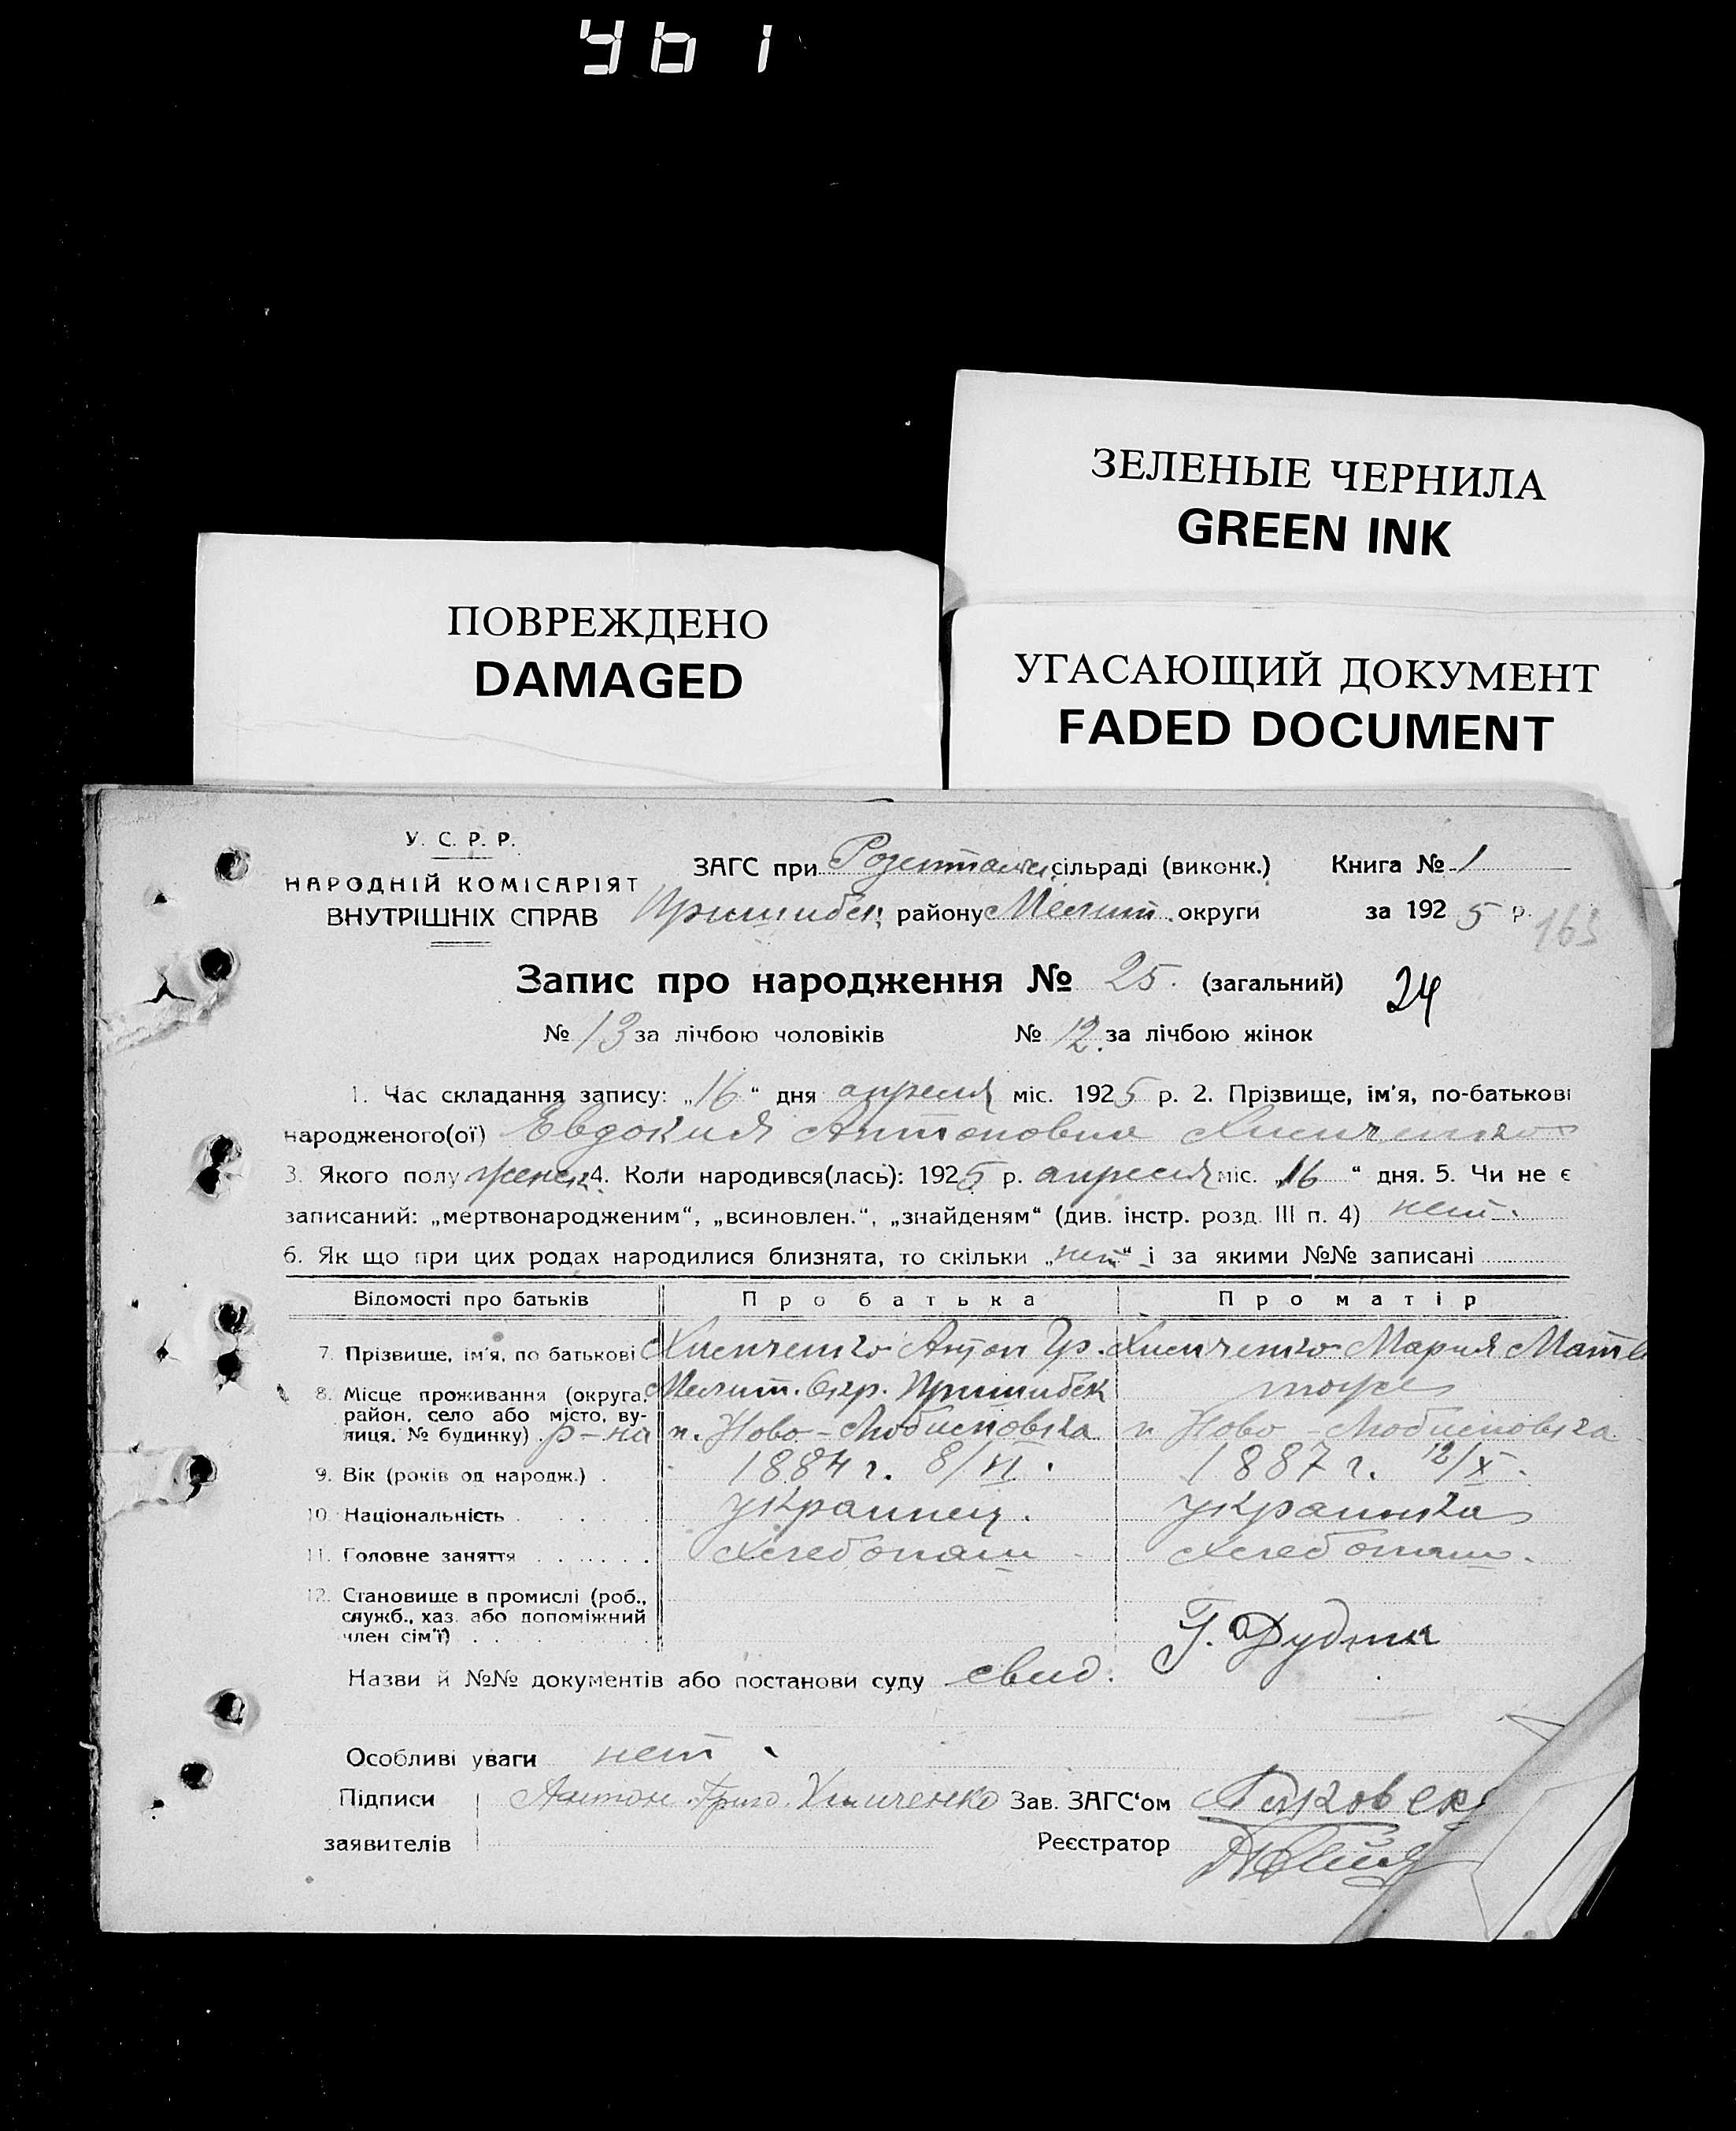 ЗЕЛЕНЫЕ ЧЕРНИЛА
GREEN INK
ПОВРЕЖДЕНО
DAMAGED
УГАСАЮЩИЙ ДОКУМЕНТ
FADED DOCUMENT
У. С. Р. Р.
НАРОДНІЙ КОМІСАРІЯТ
ВНУТРІШНІХ СПРАВ
ЗАГС при сільраді (виконк.) Книга № 1
Пришибск. району Мелит. округи за 1925 р.
163
Запис про народження № 25. (загальний) 24
№ 13 за лічбою чоловіків № 12. за лічбою жінок
1. Час складання запису: „16“ дня апреля міс. 1925 р. 2. Прізвище, ім'я, по-батькові
народженого(ої) Евдокия Антоновна Химченко
3. Якого полу женск. 4. Коли народився(лась): 1925 р. апреля міс. „16“ дня. 5. Чи не є
записаний: „мертвонародженим“, „всиновлен.“, „знайденям“ (див. інстр. розд. III п. 4) нет.
6. Як що при цих родах народилися близнята, то скільки „нет“ і за якими №№ записані
Відомості про батьків Про батька Про матір
7. Прізвище, ім'я, по батькові Химченко Антон Гр. Химченко Мария Матв
8. Місце проживання (округа, район, село або місто, вулиця, № будинку) р-на Мелит. Окр. Пришибск п. Ново- тоже п. Ново-
9. Вік (років од народж.) 1884 г. 8/VI. 1887 г. 12/X.
10. Національність украинец. украинка
11. Головне заняття хлебопаш хлебопаш.
12. Становище в промислі (роб., служб., хаз. або допоміжний член сім'ї)
Назви й №№ документів або постанови суду свид.
Особливі уваги нет
Підписи Антон Григо. Химченко Зав. ЗАГС'ом
заявителів Реєстратор